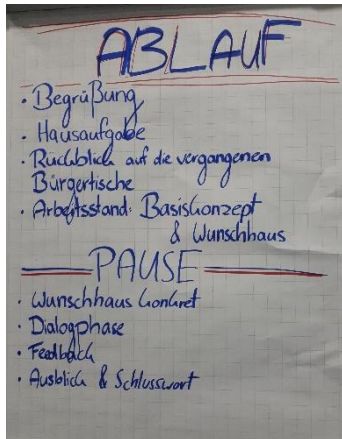 ABLAUF
· Begrüßung
· Hausaufgabe
· Rückblick auf die vergangenen
Bürgertische
· Arbeitsstand: Basiskonzept
& Wunschhaus
PAUSE
· Wunschhaus konkret
· Dialogphase
· Feedback
· Ausblick & Schlusswort